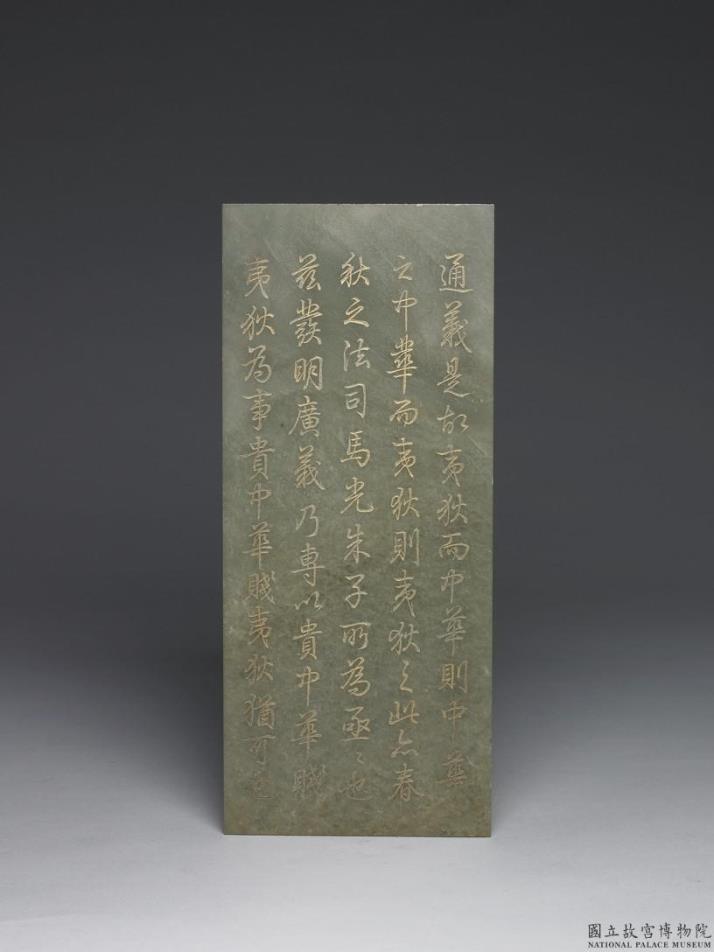 通義是故夷狄而中華則中華
之中華而夷狄則夷狄之此亦春
秋之法司馬光朱子所為亟亟也
茲發明廣義乃專以貴中華賤
夷狄為事貴中華賤夷狄猶可也
國立故宮博物院
NATIONAL PALACE MUSEUM